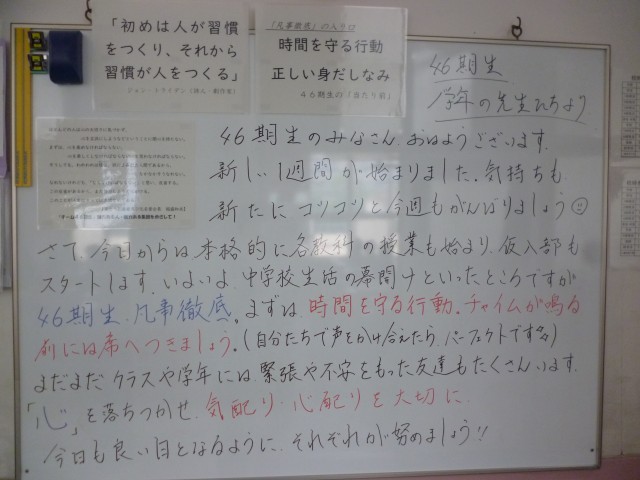 「初めは人が習慣
をつくり、それから
習慣が人をつくる」
ジョン・ドライデン（詩人・劇作家）
「凡事徹底」の入り口
時間を守る行動
正しい身だしなみ
46期生の「当たり前」
46期生
学年の先生たちより
46期生のみなさん、おはようございます。
新しい1週間が始まりました。気持ちも
新たにコツコツと今週もがんばりましょう
さて、今日からは本格的に各教科の授業も始まり、仮入部も
スタートします。いよいよ、中学校生活の幕開けといったところですが
46期生、凡事徹底。まずは、時間を守る行動。チャイムが鳴る
前には席へつきましょう。(自分たちで声をかけ合えたら、パーフェクトですね)
まだまだクラスや学年には、緊張や不安をもった友達もたくさんいます。
「心」を落ちつかせ、気配り・心配りを大切に。
今日も良い日となるように、それぞれが努めましょう!!